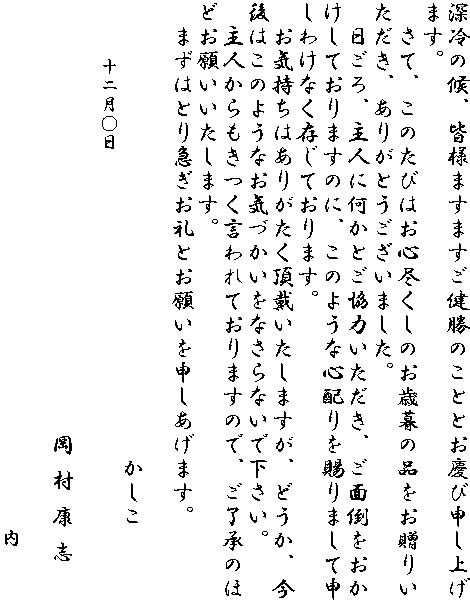 深冷の候、皆様ますますご健勝のこととお慶び申し上げ
ます。
さて、このたびはお心尽くしのお歳暮の品をお贈りい
ただき、ありがとうございました。
日ごろ、主人に何かとご協力いただき、ご面倒をおか
けしておりますのに、このような心配りを賜りまして申
しわけなく存じております。
お気持ちはありがたく頂戴いたしますが、どうか、今
後はこのようなお気づかいをなさらないで下さい。
主人からもきつく言われておりますので、ご了承のほ
どお願いいたします。
まずはとり急ぎお礼とお願いを申しあげます。
かしこ
十二月〇日
岡村康志
内